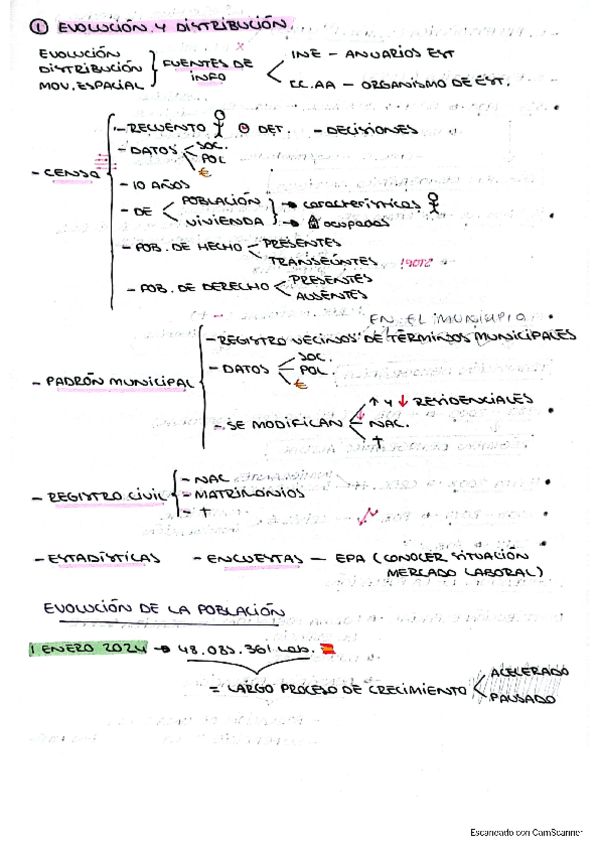 ① EVOLUCIÓN Y DISTRIBUCIÓN
EVOLUCIÓN
DISTRIBUCIÓN
MOV. ESPACIAL
FUENTES DE
INFO
INE – ANUARIOS EST
CC.AA – ORGANISMO DE EST.
- CENSO
- RECUENTO DET. - DECISIONES
- DATOS
SOC.
POL
€
- 10 AÑOS
- DE
POBLACIÓN → características
VIVIENDA → ocupadas
- POB. DE HECHO
PRESENTES
TRANSEÚNTES
- POB. DE DERECHO
PRESENTES
AUSENTES
EN EL MUNICIPIO
- PADRÓN MUNICIPAL
- REGISTRO VECINOS DE TÉRMINOS MUNICIPALES
- DATOS
SOC.
POL.
€
- SE MODIFICAN
↑ Y ↓ RESIDENCIALES
NAC.
†
- REGISTRO CIVIL
- NAC
- MATRIMONIOS
- †
- ESTADÍSTICAS - ENCUESTAS — EPA (CONOCER SITUACIÓN
MERCADO LABORAL)
EVOLUCIÓN DE LA POBLACIÓN
1 ENERO 2024 → 48.085.361 hab.
= LARGO PROCESO DE CRECIMIENTO
ACELERADO
PAUSADO
Escaneado con CamScanner